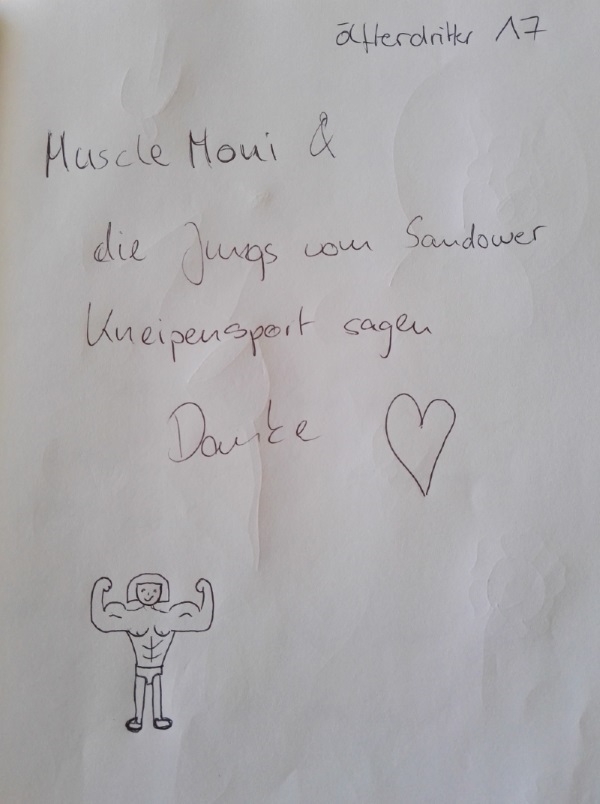 öfterdritter 17
Muscle Moni &
die Jungs vom Sandower
Kneipensport sagen
Danke